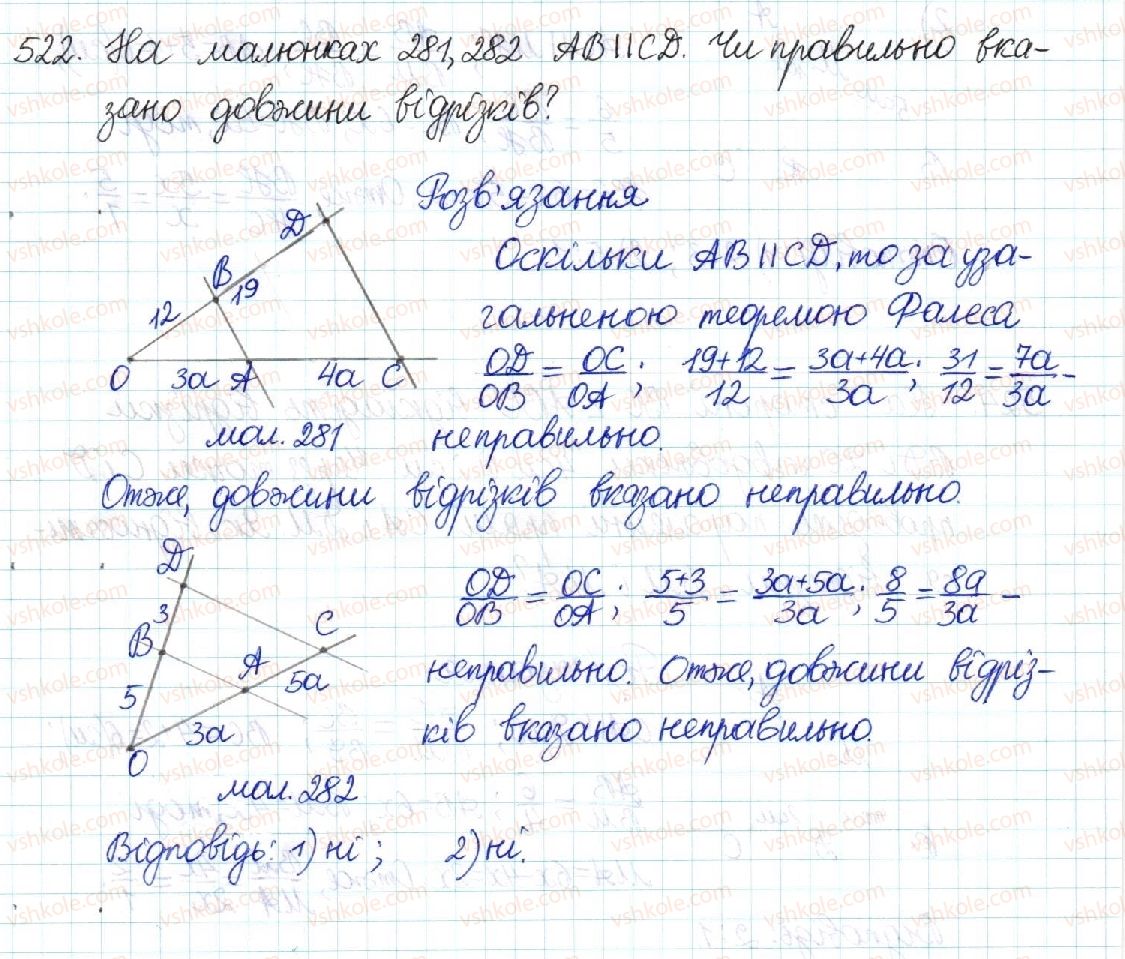 522. На малюнках 281, 282 AB || CD. Чи правильно вка-
зано довжини відрізків?
Розв'язання
Оскільки AB || CD, то за уза-
гальненою теоремою Фалеса
OD/OB = OC/OA; (19+12)/12 = (3a+4a)/3a; 31/12 = 7a/3a -
неправильно.
D
B
12
19
O
3a
A
4a
C
мал. 281
Отже, довжини відрізків вказано неправильно.
OD/OB = OC/OA; (5+3)/5 = (3a+5a)/3a; 8/5 = 8a/3a -
неправильно. Отже, довжини відріз-
ків вказано неправильно.
D
3
B
C
A
5
5a
3a
O
мал. 282
Відповідь: 1) ні; 2) ні.
vshkole.com